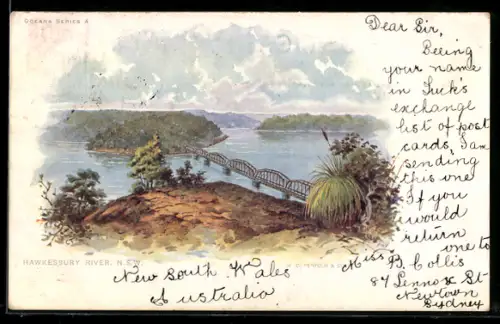 OCEANA SERIES A
Dear Sir,
Seeing
your name
in Tuck's
exchange
list of post
cards, I am
sending
this one
If you
would
return
one to
Miss B. Collis
84 Lennox St
Newtown
Sydney
HAWKESBURY RIVER, N.S.W.
New South Wales
Australia